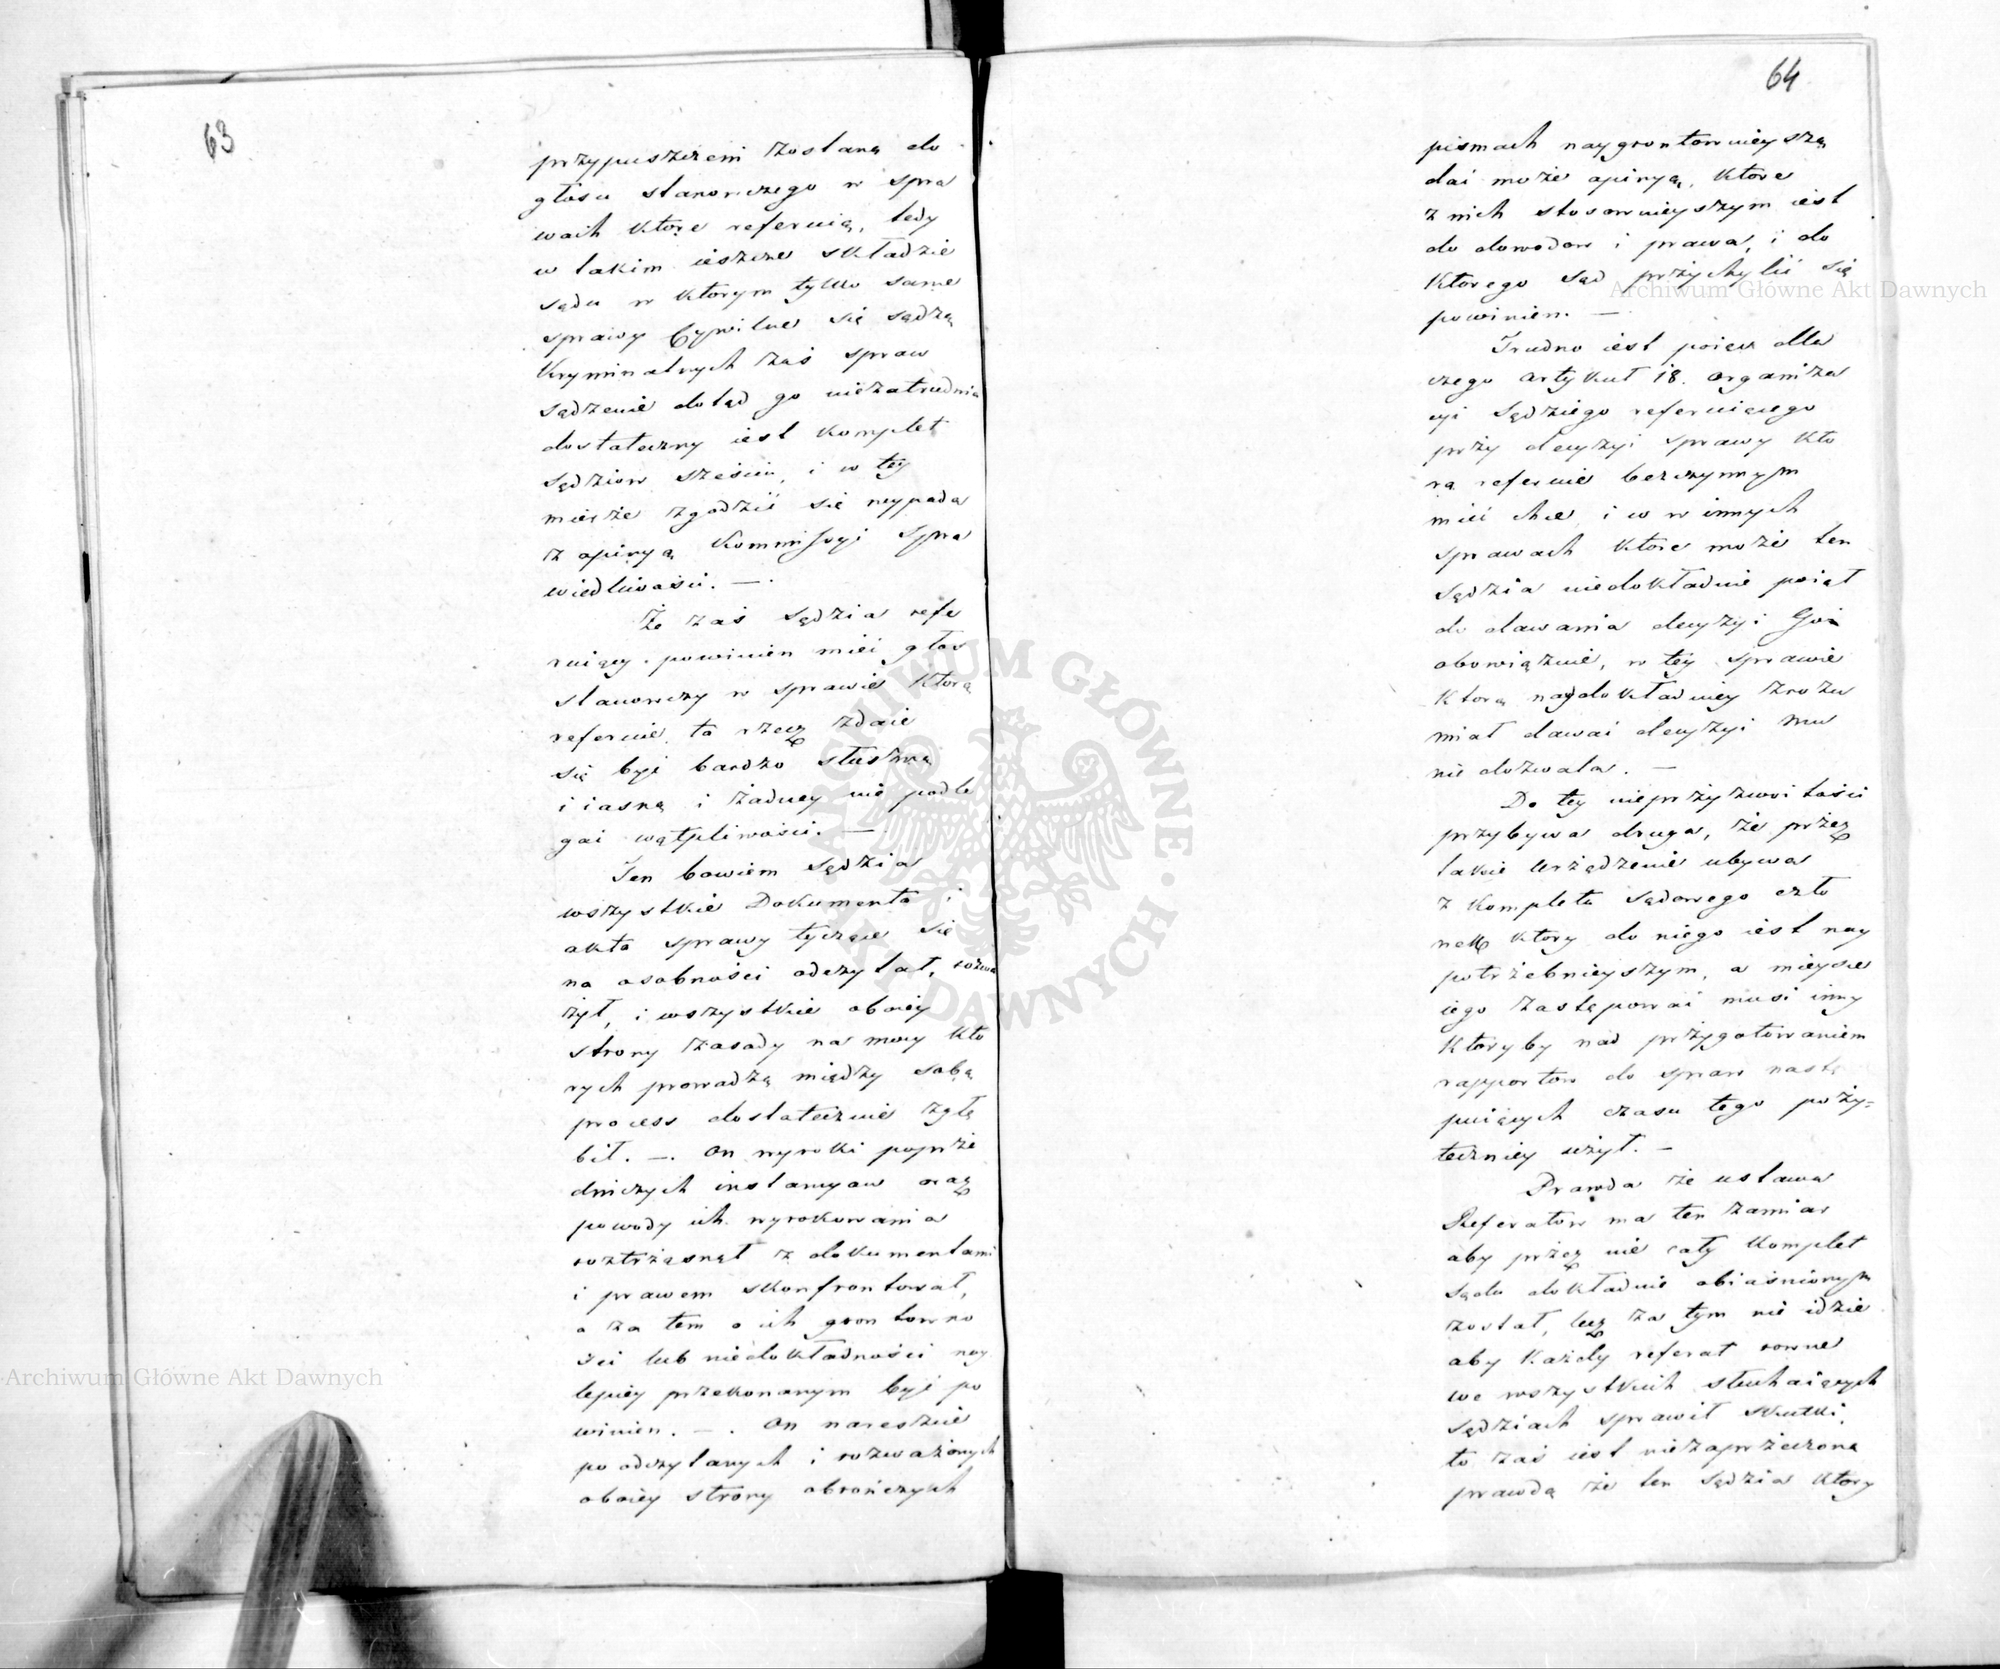 63
przypuszczeni zostaną do
głosu stanowczego w spra
wach które referuią, tedy
w takim ieszcze składzie
sądu w którym tylko same
sprawy Cywilne się sądzą
Kryminalnych zaś spraw
sądzenie dotąd go niezatrudnia
dostateczny iest komplet
sędziow sześciu, i w tey
mierze zgodzić się wypada
z opinyą Kommissyi Spra
wiedliwości. — .
Że zaś Sędzia refe
ruiący powinien mieć głos
stanowczy w sprawie którą
referuie, ta rzecz zdaie
się byé bardzo słuszną
i iasną i żadney nie podle
gać wątpliwości. —
Ten bowiem Sędzia
wszystkie Dokumenta i
akta sprawy tyczące się
na osobności odczytał, rozwa
żył, i wszystkie oboiey
strony zasady na mocy kto
rych prowadzą między sobą
process dostatecznie zgłę
bił. — . On wyroki poprze
dniczych instancyow oraz
powody ich wyrokowania
roztrząsnął z dokumentami
i prawem skonfrontował,
a za tem o ich gruntowno
ści lub niedokładności nay
lepiey przekonanym być po
winien. — . On nareszcie
po odczytanych i rozważonych
oboiey strony obrończych
64
pismach naygruntownieyszą
dać może opinyą, które
z nich stosownieyszym iest
do dowodow i prawa, i do
którego Sąd przychylić się
powinien. —
Trudno iest poiąć dla
czego artykuł 18. organiza
cyi Sędziego referuiącego
przy decyzyi sprawy kto
rą referuie bezczynnym
mieć chce, i w w innych
sprawach które może ten
Sędzia niedokładnie poiął
do dawania decyzyi Go
obowiązuie, w tey sprawie
którą naydokładniey zrozu
miał dawać decyzyi mu
nie dozwala. —
Do tey nieprzyzwoitości
przybywa druga, że przez
takie urządzenie ubywa
z kompletu sądowego czło
nek który do niego iest nay
potrzebnieyszym, a mieysce
iego zastępować musi inny
któryby nad przygotowaniem
rapportow do spraw nastę
puiących czasu tego poży=
teczniey użył. —
Prawda że ustawa
Referatow ma ten zamiar
aby przez nie cały komplet
Sądu dokładnie obiaśnionym
został, lecz za tym nie idzie
aby każdy referat rowne
we wszystkich słuchaiących
Sędziach sprawił skutki,
to zaś iest niezaprzeczoną
prawdą że ten Sędzia który
Archiwum Główne Akt Dawnych
Archiwum Główne Akt Dawnych
ARCHIWUM GŁÓWNE · AKT DAWNYCH ·